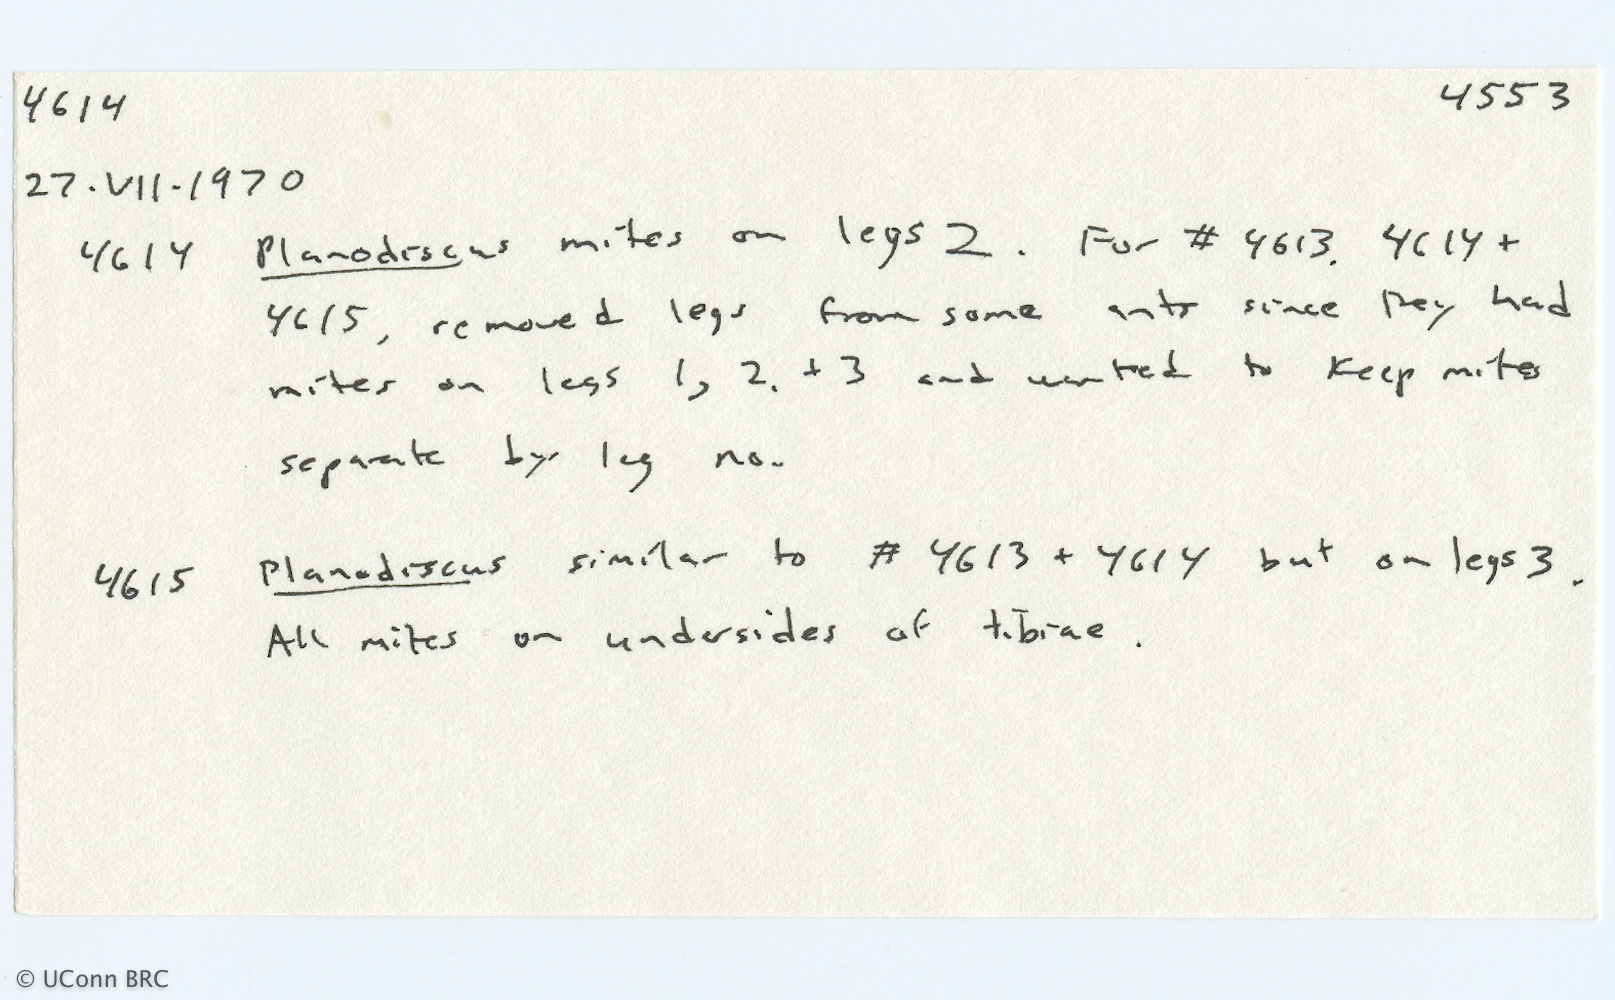 4614 4553
27.VII.1970
4614 Planodiscus mites on legs 2. For # 4613, 4614 +
4615, removed legs from some ants since they had
mites on legs 1, 2, + 3 and wanted to keep mites
separate by leg no.
4615 Planodiscus similar to # 4613 + 4614 but on legs 3.
All mites on undersides of tibiae.
© UConn BRC